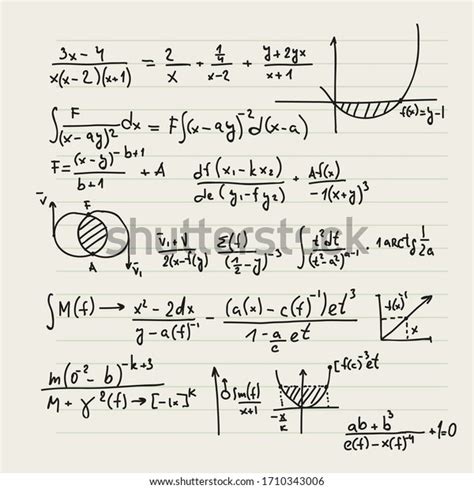 3x-4 / x(x-2)(x+1) = 2/x + 1/4 / x-2 + y+2yx / x+1
f(x)=y-1
∫ F/(x-ay)² dx = F∫(x-ay)⁻² d(x-a)
F= (x-y)^-b+1 / b+1 + A
df(x₁-kx₂) / de(y₁-fy₂) + Af(x) / -1(x+y)³
V F
A V₁
V₁+V / 2(x-f(y)
Σ(f) / (1/2-y)⁻³
∫ t²dt / (t²-a²)^a-1
1arctg 1/2a
shutterstock
∫M(f) → x²-2dx / y-a(f)⁻¹ - (a(x)-c(f)⁻¹)et³ / 1-a/c et
f(x)⁻¹
x
m(0⁻²-b)^-k+3 / M+γ²(f)→[-1x]^k
∫sm(f) / x+1
-x/k
[f(c)⁻³et
ab+b³ / e(f)-x(f)⁻⁴ +1=0
www.shutterstock.com · 1710343006